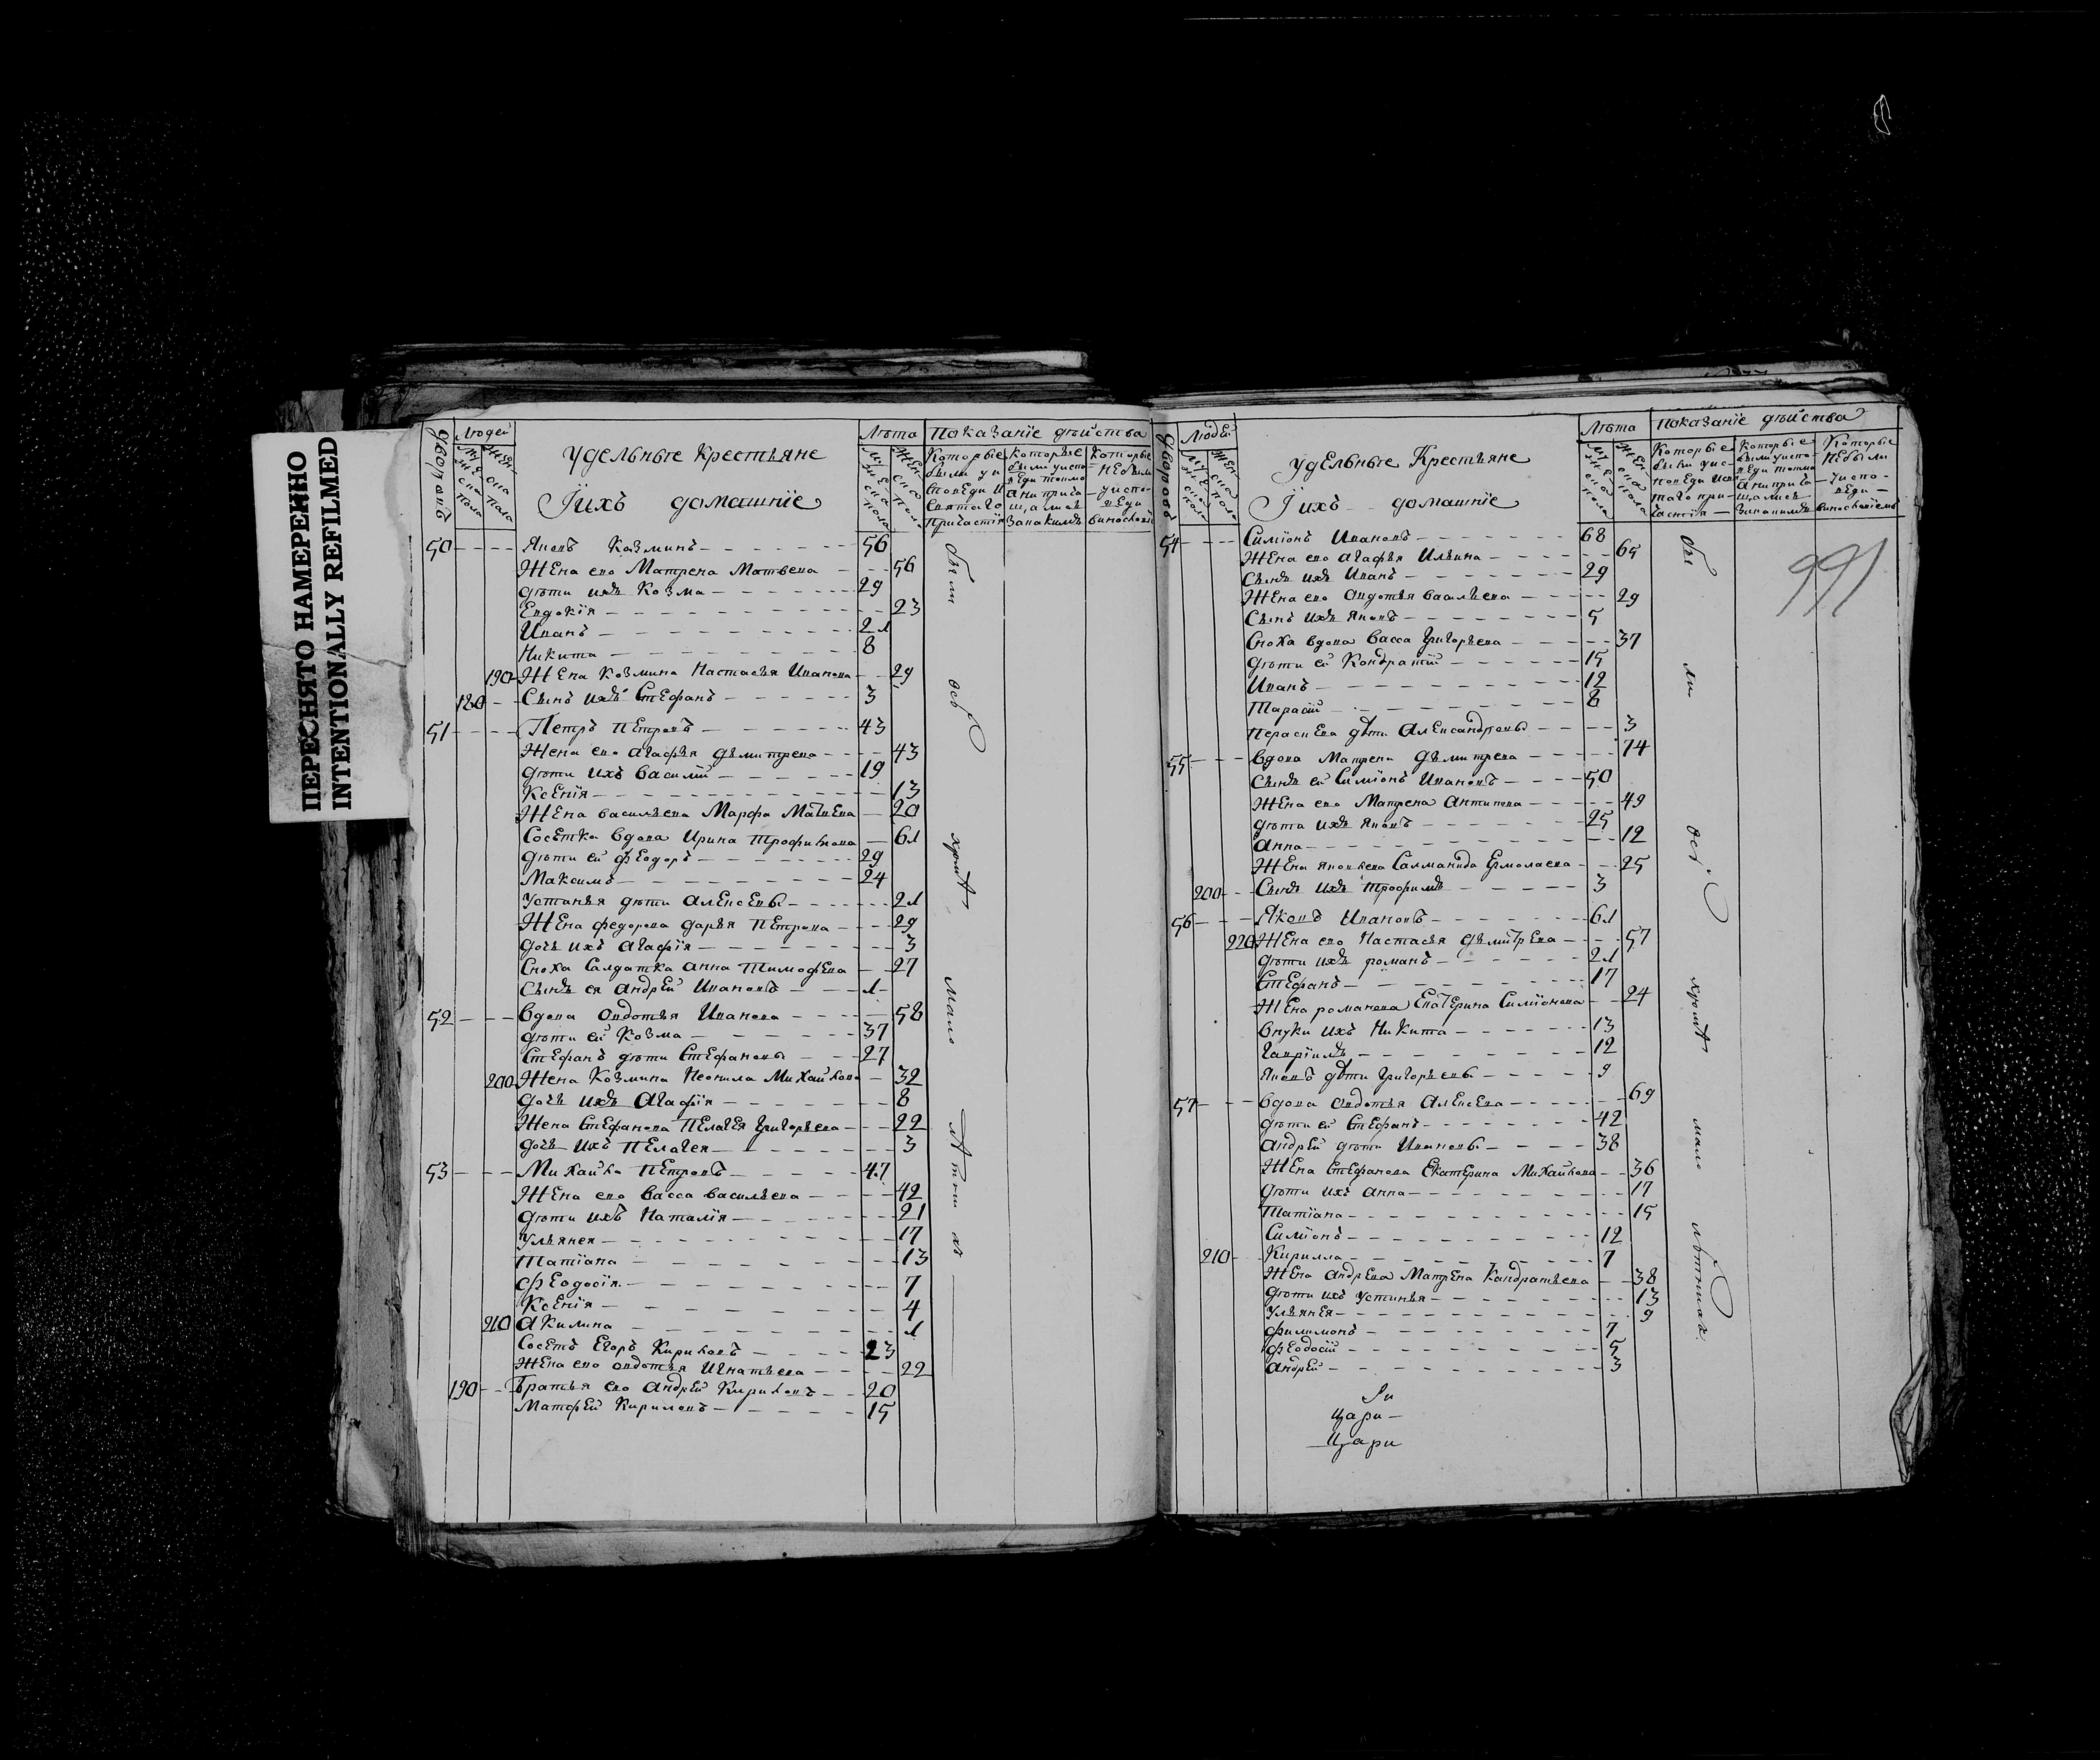 ПЕРЕСНЯТО НАМЕРЕННО
INTENTIONALLY REFILMED
Дворовъ
Людей
Мужеска пола
Женска пола
Удельные Крестьяне
Їихъ домашнїе
Лѣта
Мужеска пола
Женска пола
Показанїе дѣйства
Которые были у исповеди и святаго причастїя
Которые были у исповеди токмо а не причащались
Которые не были у исповеди
50 Яковъ Козминъ 56
Жена ево Матрена Матвева 56
Дѣти ихъ Козма 29
Евдокїя 23
Иванъ 21
Никита 8
190 Жена Козмина Настасья Иванова 29
180 Сынъ ихъ Стефанъ 3
51 Петръ Петровъ 43
Жена ево Агафья Дьмитрева 43
Дѣти ихъ Василїй 19
Ксенїя 13
Жена Васильева Марфа Матвева 20
Соседка вдова Ирина Трофимова 61
Дѣти ей Феодоръ 29
Максимъ 24
Устинья дѣти Алексевы 21
Жена Федорова Дарья Петрова 29
Дочь ихъ Агафїя 3
Сноха Салдатка Анна Тимофева 27
Сынъ ея Андрей Ивановъ 1
52 Вдова Овдотья Иванова 58
Дѣти ей Козма 37
Стефанъ дѣти Стефановы 27
200 Жена Козмина Неонила Михайлова 32
Дочь ихъ Агафїя 8
Жена Стефанова Пелагея Григорьева 22
Дочь ихъ Пелагея 3
53 Михайла Петровъ 47
Жена ево Васса Васильева 42
Дѣти ихъ Наталїя 21
Ульянея 17
Татїана 13
Феодосїя 7
Ксенїя 4
210 Акилина 1
Соседъ Егоръ Кириловъ 23
Жена ево Овдотья Игнатьева 22
190 Братья ево Андрей Кириловъ 20
Матфей Кириловъ 15
были
всѣ
кромѣ
мало
лѣтнихъ
Дворовъ
Людей
Мужеска пола
Женска пола
Удельные Крестьяне
Їихъ домашнїе
Лѣта
Мужеска пола
Женска пола
Показанїе дѣйства
54 Симїонъ Ивановъ 68
Жена ево Агафья Ильина 65
Сынъ ихъ Иванъ 29
Жена ево Овдотья Васильева 29
Сынъ ихъ Яковъ 5
Сноха вдова Васса Григорьева 37
Дѣти ей Кондратїй 15
Иванъ 12
Тарасїй 8
Параскева дѣти Александровы 3
55 Вдова Матрена Дьмитрева 74
Сынъ ей Симїонъ Ивановъ 50
Жена ево Матрена Антипова 49
Дѣти ихъ Яковъ 25
Анна 12
Жена Яковлева Салманида Ермолаева 25
200 Сынъ ихъ Трофимъ 3
56 Яковъ Ивановъ 61
220 Жена ево Настасья Дьмитрева 57
Дѣти ихъ Романъ 21
Стефанъ 17
Жена Романова Екатерина Симїонова 24
Внуки ихъ Никита 13
Гаврїилъ 12
Яковъ дѣти Григорьевы 9
57 Вдова Овдотья Алексева 69
Дѣти ей Стефанъ 42
Андрей дѣти Ивановы 38
Жена Стефанова Екатерина Михайлова 36
Дѣти ихъ Анна 17
Татїана 15
Симїонъ 12
210 Кирилла 7
Жена Андрева Матрена Кандратьева 38
Дѣти ихъ Устинья 13
Ульянея 9
Филимонъ 7
Феодосїй 5
Андрей 3
бы
ли
всѣ
кромѣ
мало
лѣтнихъ
991
Цари
Цари